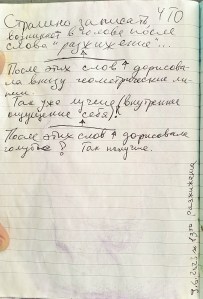 Страшно записать, что
возникает в голове после
слова "разжижение"...
После этих слов ↑ дорисова-
ла внизу геометрические ли-
нии.
Так уже лучше (внутреннее
ощущение себя)↑
После этих слов ↑ дорисовала
голубые? Так получше.
разжижение